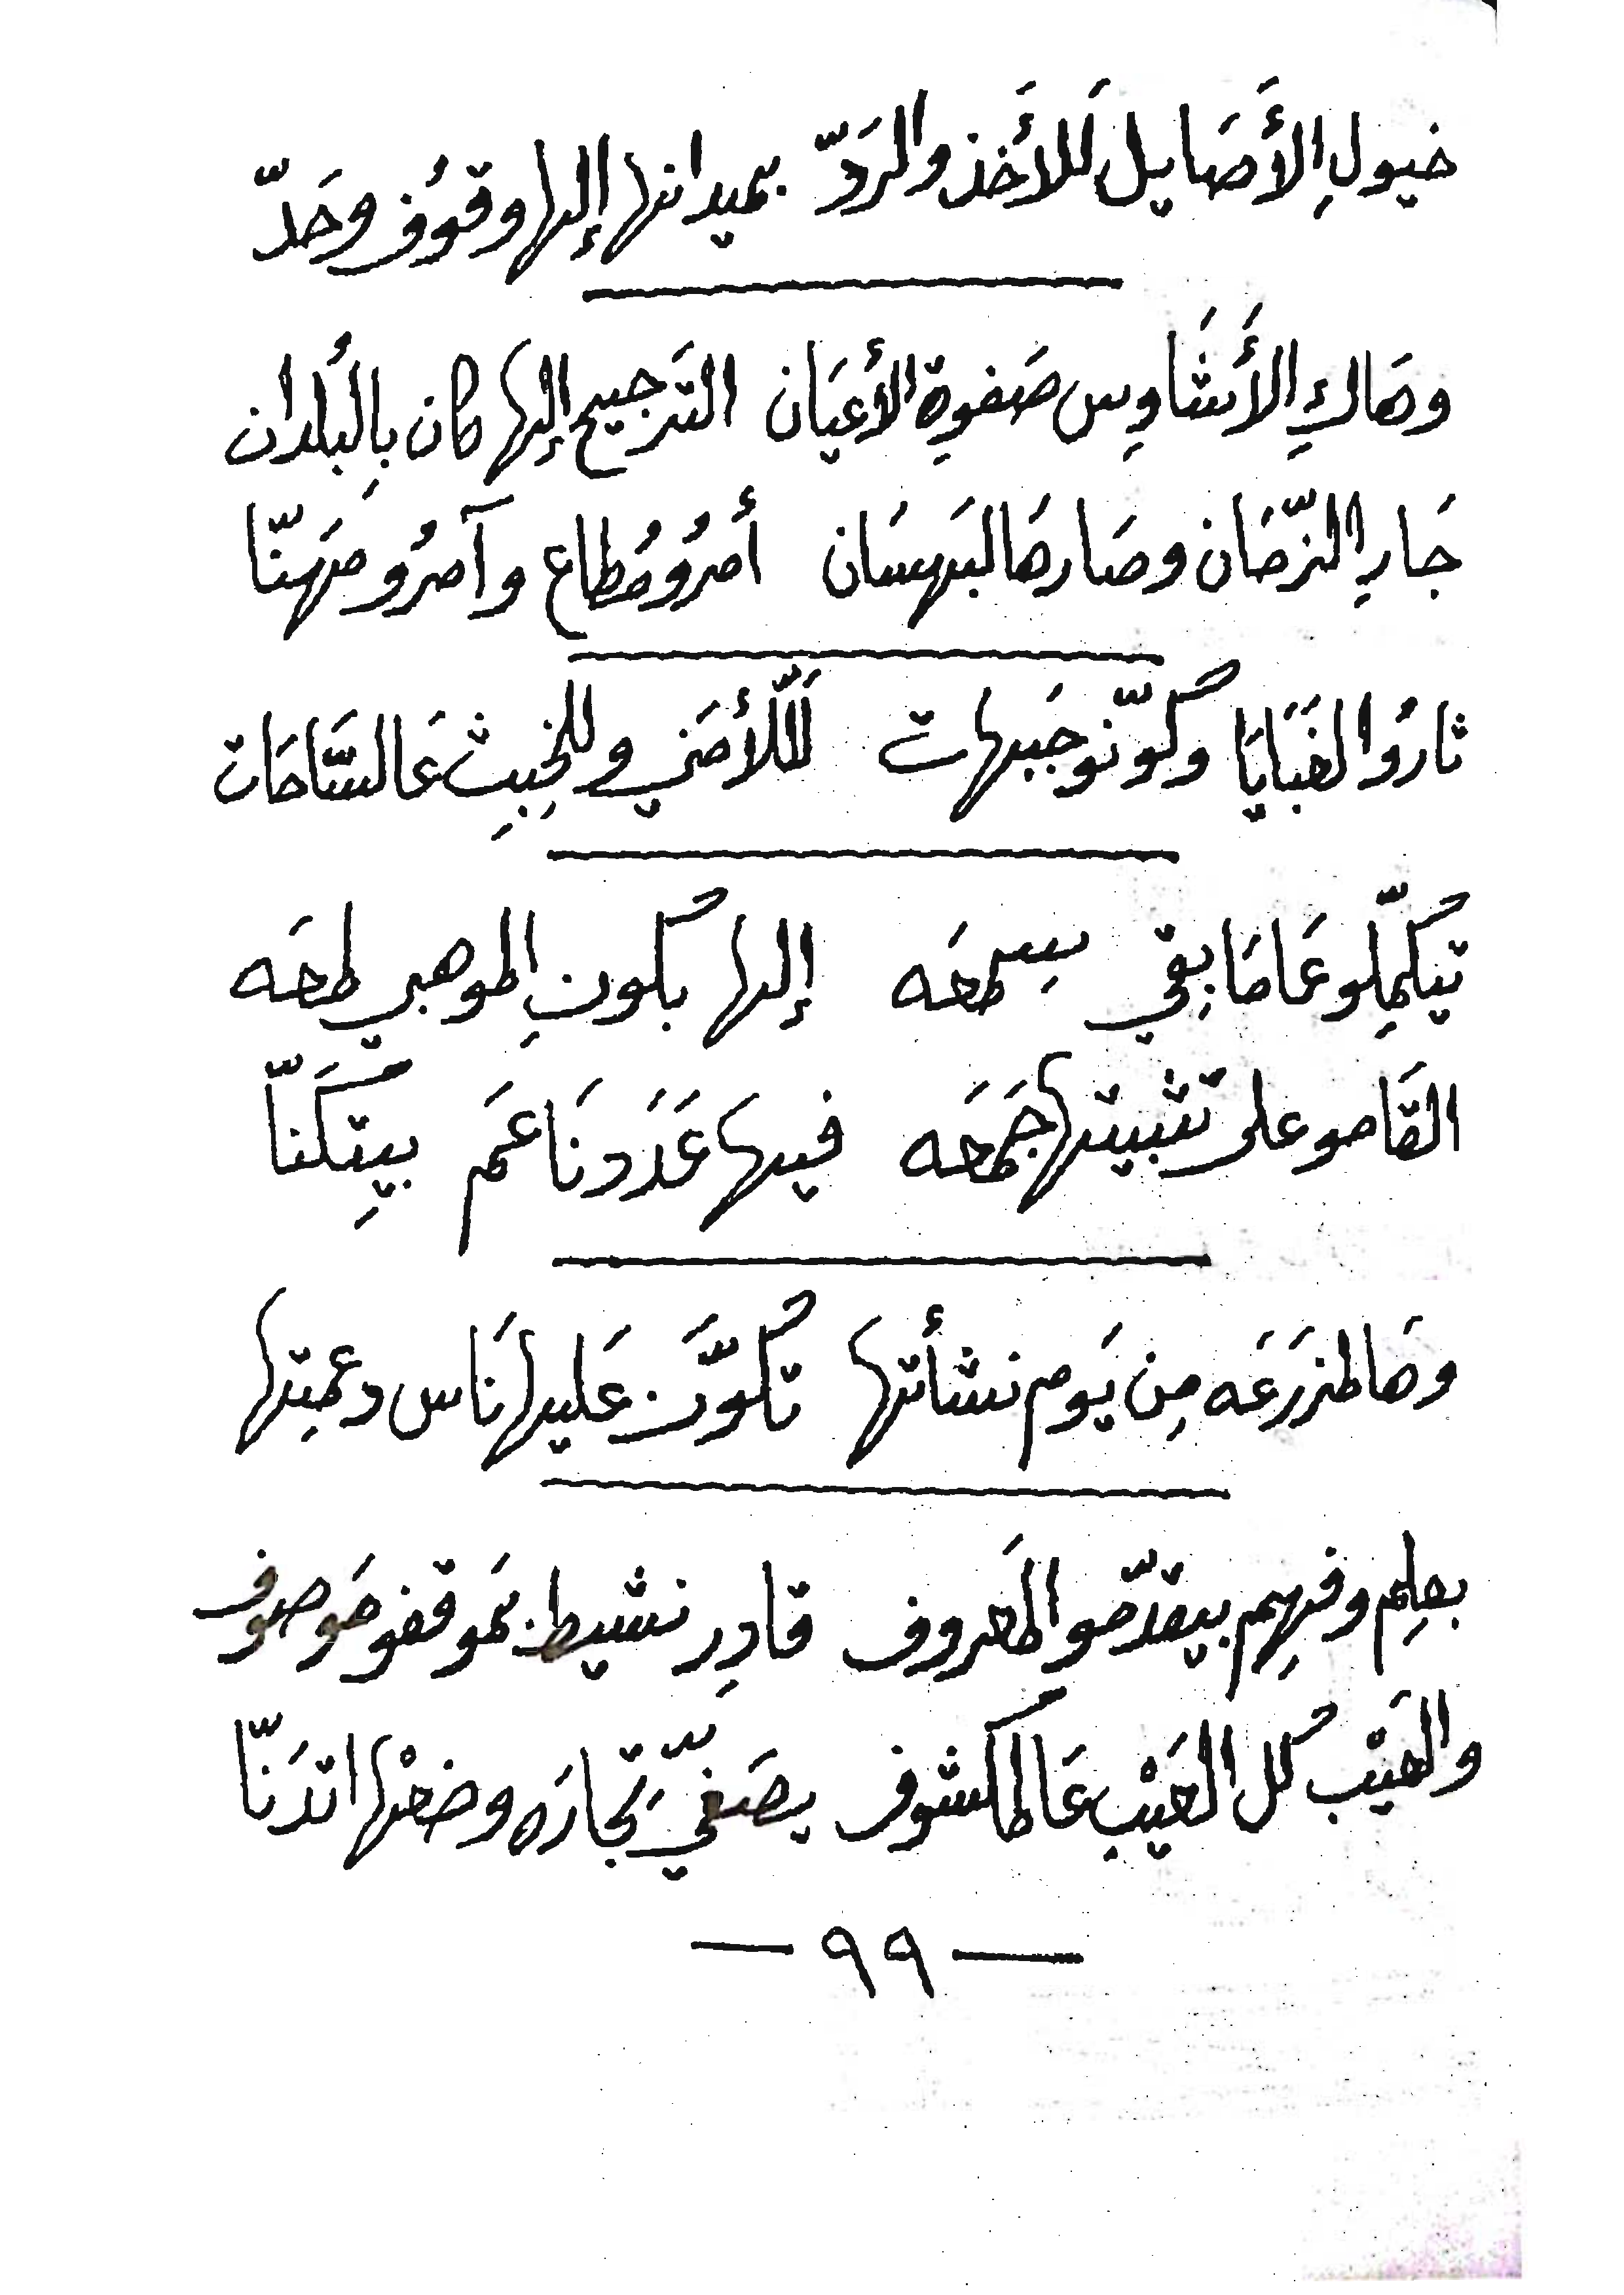 خيولِ الأَصَايل لَلأَخذ والرَدّ بميدانها إلها وقوُف وحَدّ
وهَاكِ الأَشَاوِس صَفوِة الأعيَان التَرجيح إلها كان بِالبُلدان
جَارِ الزّمَان وصَارهَا لبَهسَان أمرُو مُطاع وآمرُو مَهنّا
ثارُوا الغَبَايَا وكَوّنو جَبهات لَلّلأمَني وللخِبِيث عَالسَّاحَات
تيكمِّلو عَامَا بِقي سِمعَه إلها بكُونِ الموهبي طمعَه
القَامو على تثبيتها جَمعَه فيها عَدَدنَا عَم بيِتكَنّا
وهَالمزرَعَه مِن يَوم نشأتها تكَوَّن عَليها نَاس دعمِتها
بعلِم وفهِم بيقدّمو المَعروف قادِر نشيط بمَوقفو مَوصوف
والعَيْب كل العَيْب عَالمكشوف يصَفّي تجارَه وضعْها اتدَنّا
— ٩٩ —